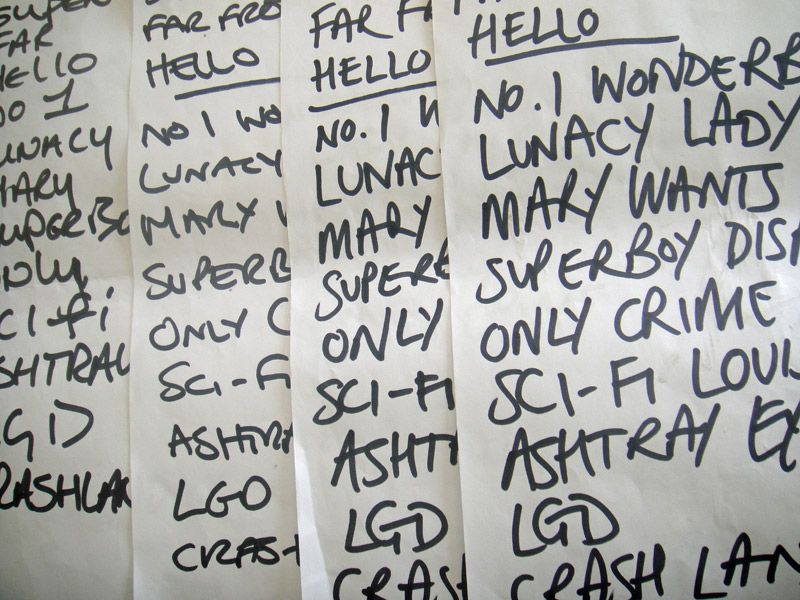 SUPER
FAR
HELLO
NO 1
LUNACY
MARY
SUPERBO
ONLY
SCI-FI
ASHTRAY
LGD
RASHLAN
FAR FRO
HELLO
NO 1 WO
LUNACY
MARY W
SUPERB
ONLY C
SCI-FI
ASHTRA
LGD
CRASH
FAR F
HELLO
NO. 1 W
LUNAC
MARY
SUPERB
ONLY
SCI-FI
ASHT
LGD
CRASH
HELLO
NO. 1 WONDERB
LUNACY LADY
MARY WANTS
SUPERBOY DISA
ONLY CRIME
SCI-FI LOUI
ASHTRAY EY
LGD
CRASH LAN